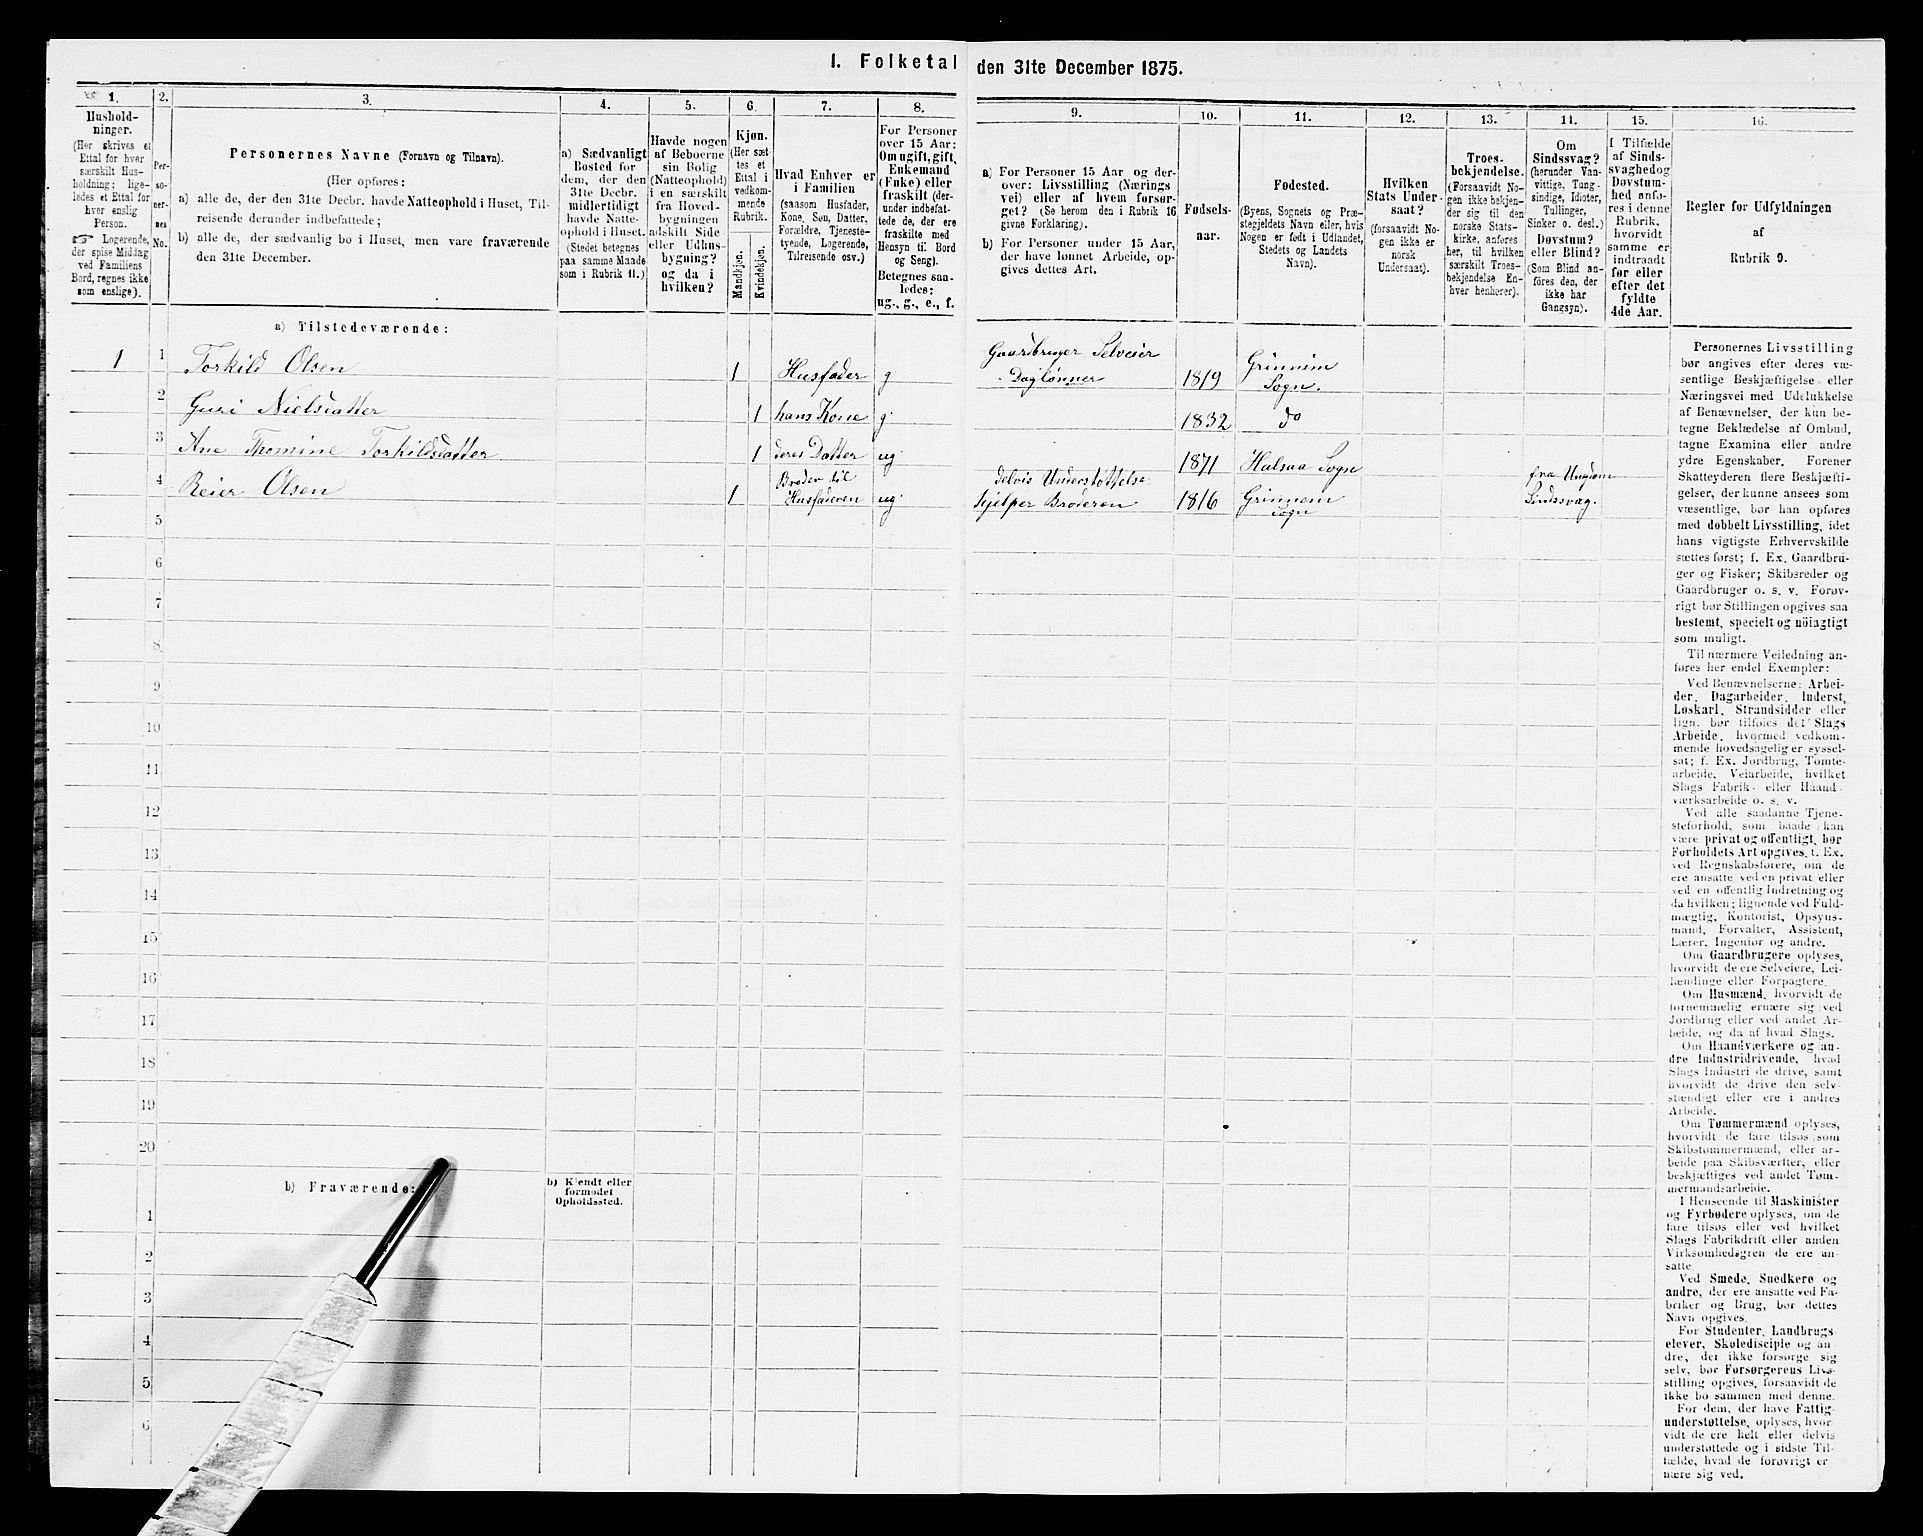 I. Folketal den 31te December 1875.
1.
Hushold-
ninger.
(Her skrives et
Ettal for hver
særskilt Hus-
holdning; lige-
ledes et Ettal for
hver enslig
Person.
☞ Logerende,
der spise Middag
ved Familiens
Bord, regnes ikke
som enslige).
2.
Per-
so-
ner-
nes
No.
3.
Personernes Navne (Fornavn og Tilnavn).
(Her opføres:
a) alle de, der den 31te Decbr. havde Natteophold i Huset, Til-
reisende derunder indbefattede;
b) alle de, der sædvanlig bo i Huset, men vare fraværende
den 31te December.
4.
a) Sædvanligt
Bosted for
dem, der den
31te Decbr.
midlertidigt
havde Natte-
ophold i Huset.
(Stedet betegnes
paa samme Maade
som i Rubrik 11.)
5.
Havde nogen
af Beboerne
sin Bolig
(Natteophold)
i en særskilt
fra Hoved-
bygningen
adskilt Side
eller Udhus-
bygning?
og da i
hvilken?
6.
Kjøn.
(Her sæt
tes et
Ettal i
vedkom-
mende
Rubrik.
Mandkjøn.
Kvindekjøn.
7.
Hvad Enhver er
i Familien
(saasom Husfader,
Kone, Søn, Datter,
Forældre, Tjeneste-
tyende, Logerende,
Tilreisende osv.)
8.
For Personer
over 15 Aar:
Om ugift, gift,
Enkemand
(Enke) eller
fraskilt (der-
under indbefat-
tede de, der ere
fraskilte med
Hensyn til Bord
og Seng).
Betegnes saa-
ledes:
ug., g., e., f.
9.
a) For Personer 15 Aar og der-
over: Livsstilling (Nærings
vei) eller af hvem forsør-
get? (Se herom den i Rubrik 16
givne Forklaring).
b) For Personer under 15 Aar,
der have lønnet Arbeide, op-
gives dettes Art.
10.
Fødsels-
aar.
11.
Fødested.
(Byens, Sognets og Præ-
stegjeldets Navn eller, hvis
Nogen er født i Udlandet,
Stedets og Landets
Navn).
12.
Hvilken
Stats Under-
saat?
(forsaavidt No-
gen ikke er
norsk
Undersaat).
13.
Troes-
bekjendelse.
(Forsaavidt No-
gen ikke bekjen-
der sig til den
norske Stats-
kirke, anføres
her, til hvilken
særskilt Troes-
bekjendelse En-
hver henhører).
14.
Om
Sindssvag?
(herunder Van-
vittige, Tung-
sindige, Idioter,
Tullinger,
Sinker o. desl.)
Døvstum?
eller Blind?
(Som Blind an-
føres den, der
ikke har
Gangsyn).
15.
I Tilfælde
af Sinds-
svaghed og
Døvstum-
hed anfø-
res i denne
Rubrik,
hvorvidt
samme er
indtraadt
før eller
efter det
fyldte
4de Aar.
16.
Regler for Udfyldningen
af
Rubrik 9.
a) Tilstedeværende:
1 1 Torkild Olsen 1 Husfader g Gaardbruger Selveier
Daglønner 1819 Grinnim
Sogn.
2 Guri Nielsdatter 1 hans Kone g. 1832 do
3 Ane Thomine Torkildsdatter 1 deres Datter ug. 1871 Halsaa Sogn
4 Reier Olsen 1 Broder til
Husfaderen ug. delvis Understøttelse.
Hjelper Broderen 1816 Grinnem
Sogn fra Ungdom
Sindssvag.
5
6
7
8
9
10
11
12
13
14
15
16
17
18
19
20
b) Fraværende:
b) Kjendt eller
formodet
Opholdssted.
1
2
3
4
5
6
Personernes Livsstilling
bør angives efter deres væ-
sentlige Beskjæftigelse eller
Næringsvei med Udelukkelse
af Benævnelser, der kun be-
tegne Beklædelse af Ombud,
tagne Examina eller andre
ydre Egenskaber. Forener
Skatteyderen flere Beskjæfti-
gelser, der kunne ansees som
væsentlige, bør han opføres
med dobbelt Livsstilling, idet
hans vigtigste Erhvervskilde
sættes først; f. Ex. Gaardbru-
ger og Fisker; Skibsreder og
Gaardbruger o. s. v. Forøv-
rigt bør Stillingen opgives saa
bestemt, specielt og nöiagtigt
som muligt.
Til nærmere Veiledning an-
føres her endel Exempler:
Ved Benævnelserne: Arbei-
der, Dagarbeider, Inderst,
Løskarl, Strandsidder eller
lign. bør tilføies det Slags
Arbeide, hvormed vedkom-
mende hovedsagelig er syssel-
sat; f. Ex. Jordbrug, Tomte-
arbeide, Veiarbeide, hvilket
Slags Fabrik- eller Haand-
værksarbeide o. s. v.
Ved alle saadanne Tjene-
steforhold, som baade kan
være privat og offentligt, bør
Forholdets Art opgives, f. Ex.
ved Regnskabsførere, om de
ere ansatte ved en privat eller
ved en offentlig Indretning og
da hvilken; lignende ved Fuld-
mægtig, Kontorist, Opsyns-
mand, Forvalter, Assistent,
Lærer, Ingeniør og andre.
Om Gaardbrugere oplyses,
hvorvidt de ere Selveiere, Lei-
lændinge eller Forpagtere.
Om Husmænd, hvorvidt de
fornemmelig ernære sig ved
Jordbrug eller ved andet Ar-
beide, og da af hvad Slags.
Om Haandværkere og an-
dre Industridrivende, hvad
Slags Industri de drive, samt
hvorvidt de drive den selv-
stændigt eller ere i andres
Arbeide.
Om Tømmermænd oplyses,
hvorvidt de fare tilsøs som
Skibstømmermænd, eller ar-
beide paa Skibsværfter, eller
beskjæftiges ved andet Tøm-
mermandsarbeide.
I Henseende til Maskinister
og Fyrbødere oplyses, om de
fare tilsøs eller ved hvilket
Slags Fabrikdrift eller anden
Virksomhedsgren de ere an-
satte.
Ved Smede, Snedkere og
andre, der ere ansatte ved Fa-
briker og Brug, bør dettes
Navn opgives.
For Studenter, Landbrugs-
elever, Skoledisciple og an-
dre, der ikke forsørge sig
selv, bør Forsørgerens Livs-
stilling opgives, forsaavidt de
ikke bo sammen med denne.
For dem, der have Fattig-
understøttelse, oplyses, hvor-
vidt de ere helt eller delvis
understøttede og i sidste Til-
fælde, hvad de forøvrigt er
nære sig ved.